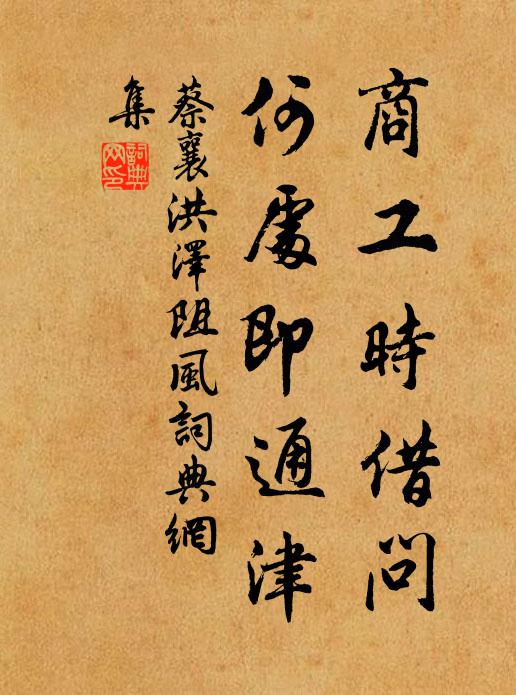 商工時借問
何處即通津
蔡襄洪澤阻風詞典網
集
詞典
网印